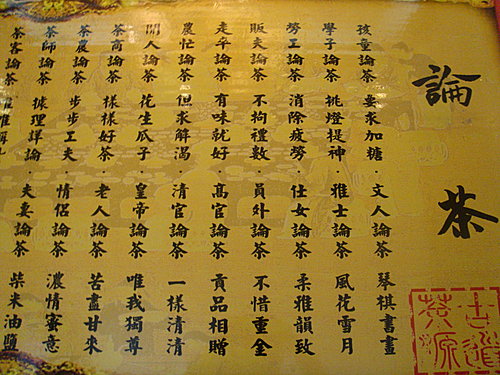 論茶
孩童論茶 要求加糖·文人論茶 琴棋書畫
學子論茶 挑燈提神·雅士論茶 風花雪月
勞工論茶 消除疲勞·仕女論茶 柔雅韻致
販夫論茶 不拘禮數·員外論茶 不惜重金
走卒論茶 有味就好·高官論茶 貢品相贈
農忙論茶 但求解渴·清官論茶 一樣清清
閒人論茶 花生瓜子·皇帝論茶 唯我獨尊
茶商論茶 樣樣好茶·老人論茶 苦盡甘來
茶農論茶 步步工夫·情侶論茶 濃情蜜意
茶師論茶 據理詳論·夫妻論茶 柴米油鹽
茶客論茶
古道